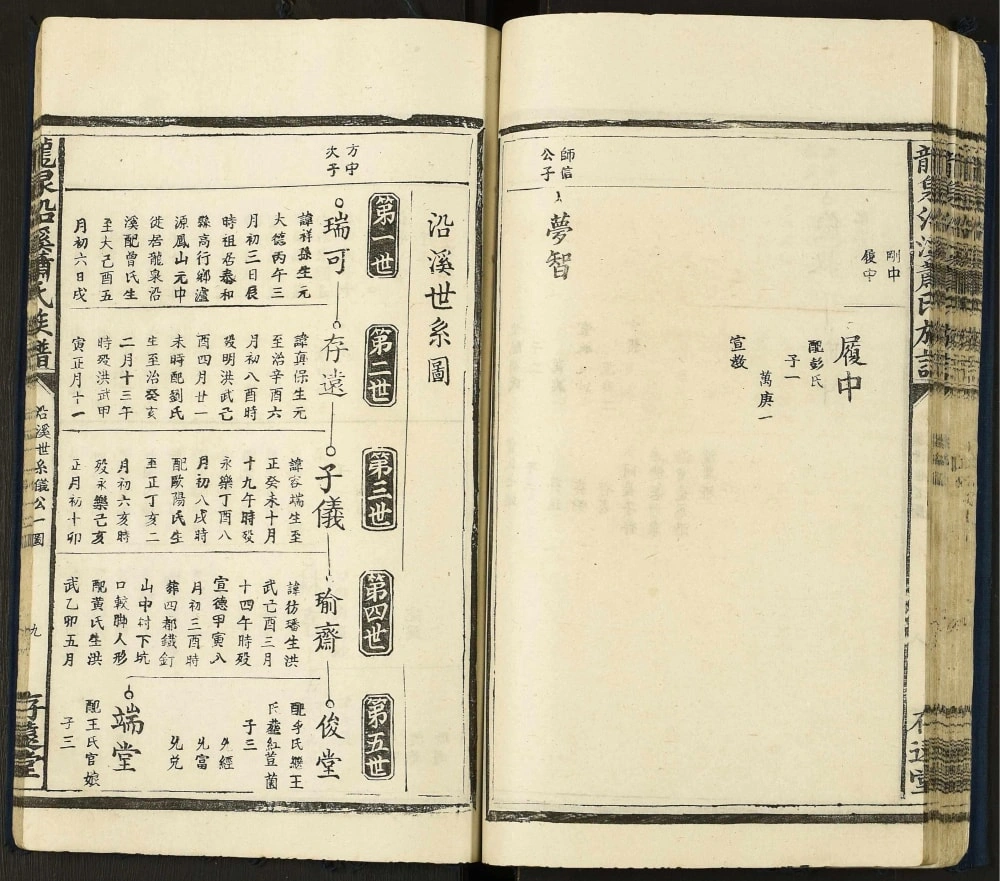 龍泉沿溪蕭氏族譜
存遠堂
剛中
履中
履中
配彭氏
子一
萬庚一
宣教
師信
公子
夢智
沿溪世系圖
第一世
第二世
第三世
第四世
第五世
方中
次子
瑞可
諱祥孫生元
大德丙午三
月初三日辰
時祖居泰和
縣高行鄉瀘
源鳳山元中
徙居龍泉沿
溪配曾氏生
至大己酉五
月初六日戌
存遠
諱真保生元
至治辛酉六
月初八酉時
歿明洪武己
酉四月廿一
未時配劉氏
生至治癸亥
二月十三午
時歿洪武甲
寅正月十一
子儀
諱容端生至
正癸未十月
十九午時歿
永樂丁酉八
月初八戌時
配歐陽氏生
至正丁亥二
月初六亥時
歿永樂己亥
正月初十卯
瑜齋
諱彷璠生洪
武己酉三月
十四午時歿
宣德甲寅八
月初三酉時
葬四都鐵釘
山中村下坑
口較聯人形
配黃氏生洪
武乙卯五月
俊堂
子三
端堂
配王氏官娘
子三
龍泉沿溪蕭氏族譜
沿溪世系儀公一圖
九
存遠堂